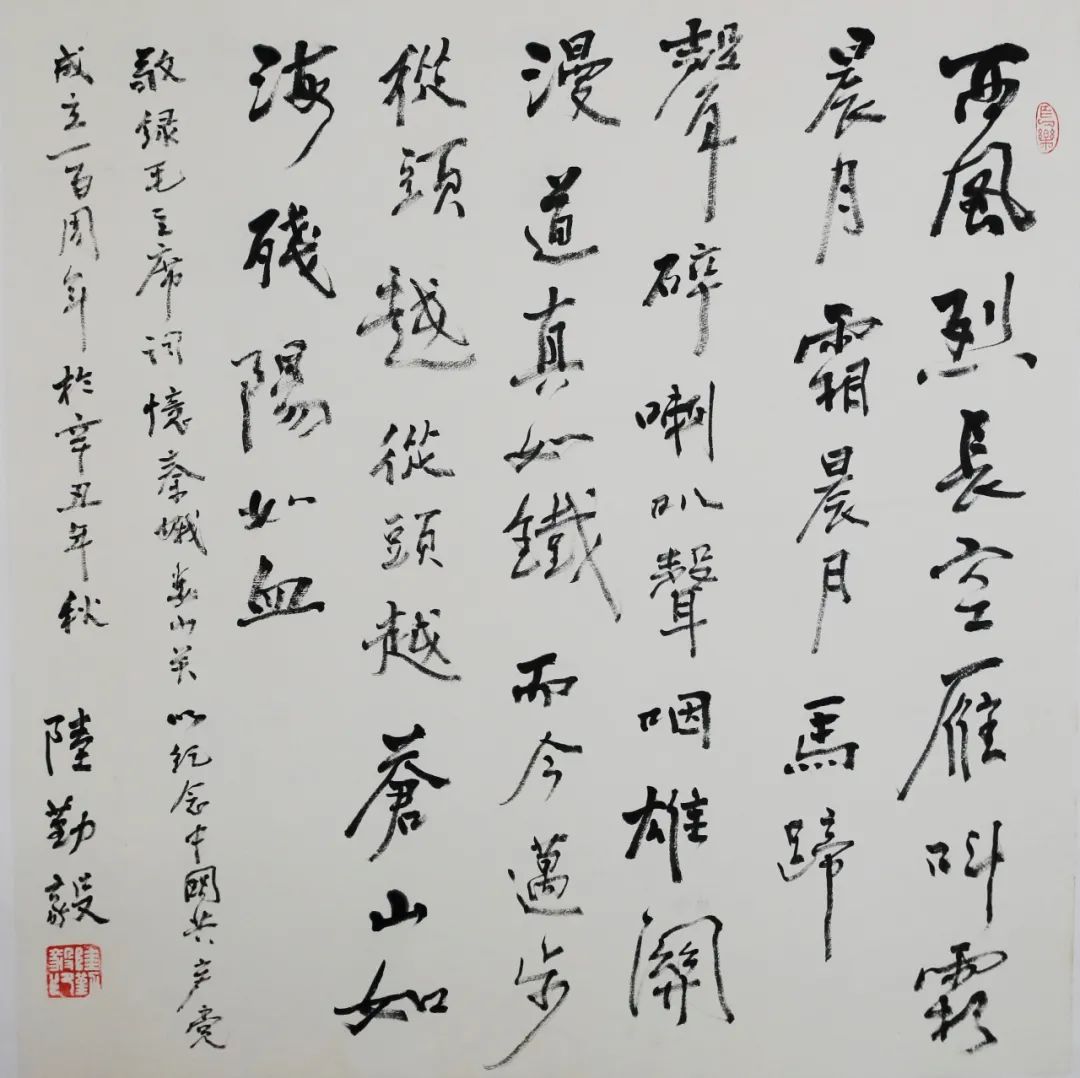 西風烈長空雁叫霜
晨月霜晨月馬蹄
聲碎喇叭聲咽雄關
漫道真如鐵而今邁步
從頭越從頭越蒼山如
海殘陽如血
敬録毛主席词憶秦娥娄山关以纪念中國共产党
成立一百周年於辛丑年秋
陸勤毅
陸勤毅印